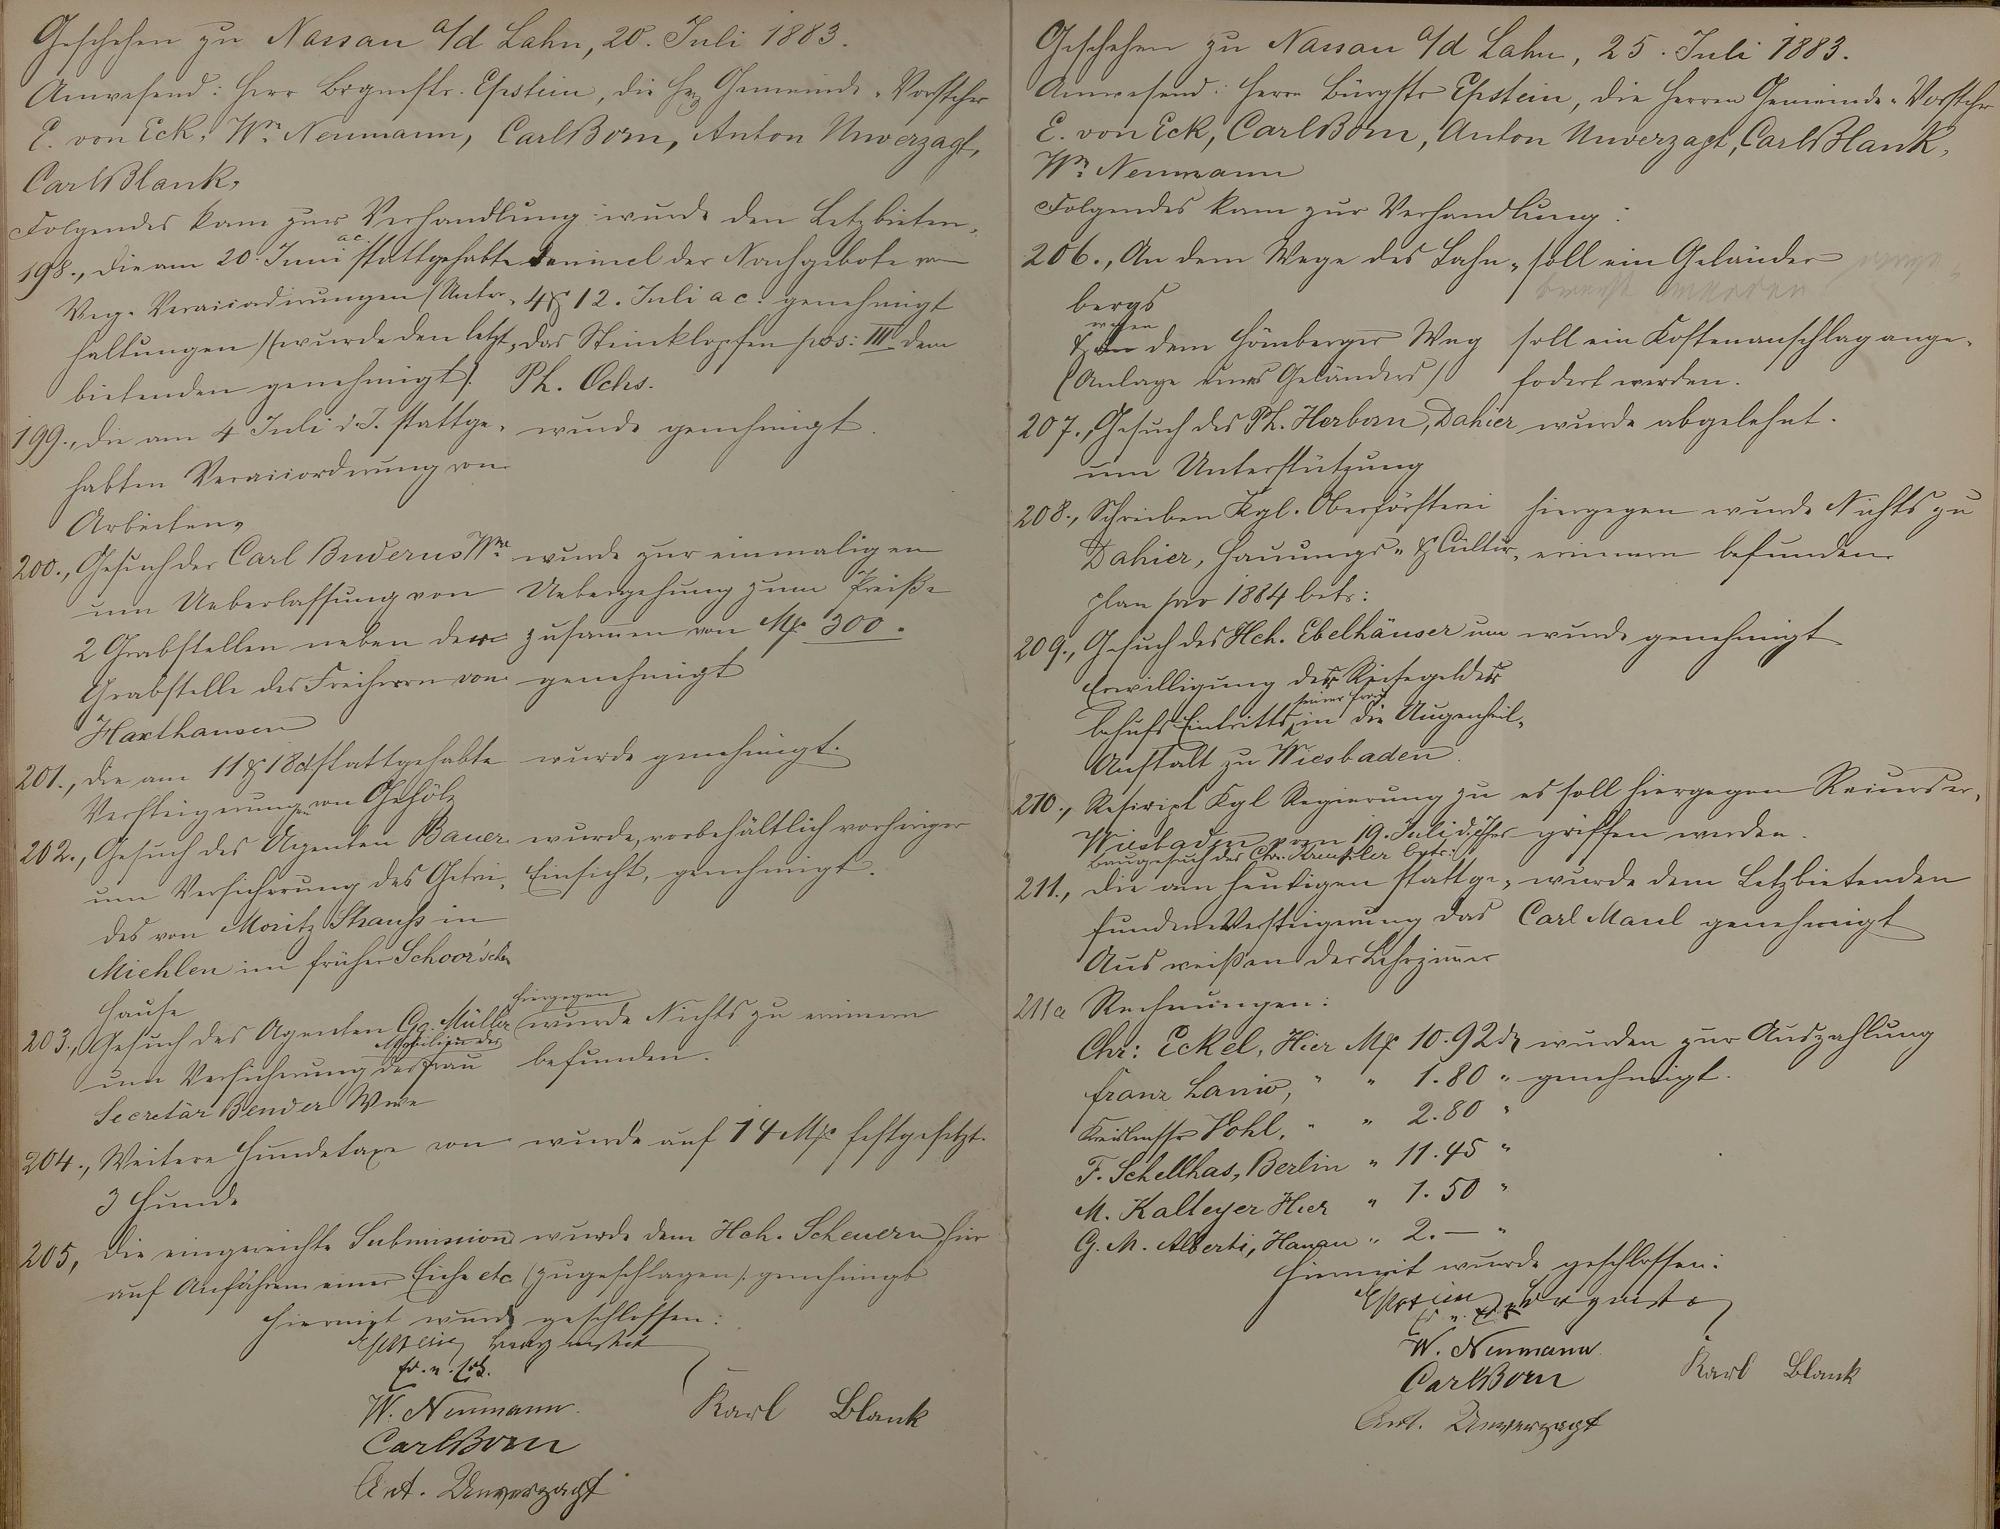 Geschehen zu Nassau a/d Lahn, 20. Juli 1883.
Anwesend: Herr Brgmstr. Epstein, die Hrn Gemeinde-Vorsteher
E. von Eck, Wm. Neumann, Carl Born, Anton Unverzagt,
Carl Blank.
Folgendes kam zur Verhandlung: wurde den Letzbieten-
198., die am 20. Juni a. c. stattgehabte den incl der Nachgebote von
Weg-Veraccordirungen (Unter- 4 & 12. Juli a c. genehmigt
haltungen) (wurde den letzt- das Steinklopfen pos: III dem
bietenden genehmigt). Ph. Ochs.
199., die am 4 Juli d. J. stattge- wurde genehmigt.
habten Veraccordirung von
Arbeiten.
200., Gesuch der Carl Buderus Wwe wurde zur einmaligen
um Ueberlassung von Uebergehung zum Preiße
2 Grabstellen neben der zusammen von Mk 300.
Grabstelle des Freiherrn von genehmigt
Haxthausen
201., die am 11 & 18 d stattgehabte wurde genehmigt.
Versteigerungen von Gehölz
202., Gesuch des Agenten Bauer wurde, vorbehältlich vorheriger
um Versicherung des Getrei- Einsicht, genehmigt.
des von Moritz Strauß in
Miehlen im früher Schoor'schen
Hause
203., Gesuch des Agenten Gg. Müller hiergegen wurde Nichts zu erinnern
um Versicherung Mobilien der Frau befunden.
Secretär Bender Wwe
204., Weitere Hundetaxe von wurde auf 14 Mk festgesetzt.
3 Hunde
205, die eingereichte Submission wurde dem Hch. Scheuern hier
auf Anfahren einer Eiche etc (zugeschlagen) genehmigt
Hiermit wurde geschlossen:
Epstein Bürgermeister
W. Neumann.
Carl Born
Karl Blank
Ant. Unverzagt
Geschehen zu Nassau a/d Lahn, 25. Juli 1883.
Anwesend: Herr Bürgstr Epstein, die Herren Gemeinde-Vorsteher
E. von Eck, Carl Born, Anton Unverzagt, Carl Blank,
Wm. Neumann
Folgendes kam zur Verhandlung:
206., An dem Wege des Lahn- soll ein Geländer
bergs
& wegen dem Hömberger Weg soll ein Kostenanschlag ange-
(Anlage eines Geländers) fodert werden.
207., Gesuch des Ph. Herborn, Dahier wurde abgelehnt.
um Unterstützung
208., Schreiben Kgl. Oberförsterei hiergegen wurde Nichts zu
Dahier, Hauungs- & Cultur- erinnern befunden.
plan pro 1884 betr:
209., Gesuch des Hch. Ebelhäuser um wurde genehmigt
Erwilligung des Reisegeldes
behufs Eintritts seiner Frau in die Augenheil-
Anstalt zu Wiesbaden.
210., Rescript Kgl Regierung zu es soll hiergegen Recurs er-
Wiesbaden vom 19. Juli d. Jhrs griffen werden.
Baugesuch des Chr. Kreußler betr:
211., die am heutigen stattge- wurde dem Letzbietenden
fundene Versteigerung das Carl Maul genehmigt
Ausweißen der Lehrzimmer
211a Rechnungen:
Chr: Eckel, Hier Mk 10.92 d wurden zur Auszahlung
Franz Lanio, " " 1.80 " genehmigt.
Pohl, " " 2.80 "
F. Schellhas, Berlin " 11.45 "
M. Kalteyer Hier " 1.50 "
G. M. Alberti, Hanau " 2.— "
Hiermit wurde geschlossen:
Epstein Bürgermstr
W. Neumann.
Carl Born
Karl Blank
Ant. Unverzagt